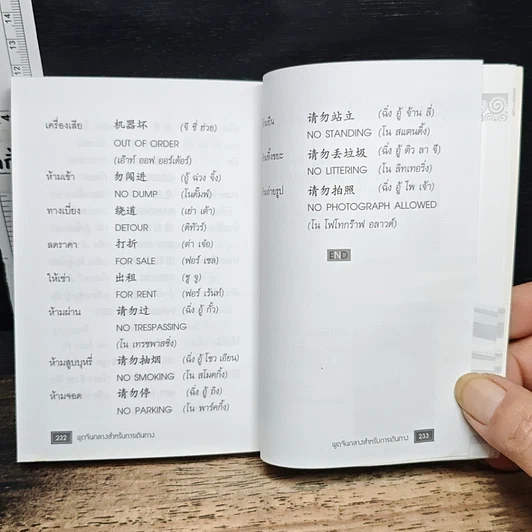 เครื่องเสีย 机器坏 (จี ชี่ ฮ่วย)
OUT OF ORDER
(เอ๊าท์ ออฟ ออร์เด้อร์)
ห้ามเข้า 勿闯进 (อู้ ฉ่วง จิ้ง)
NO DUMP (โนดั๊มพ์)
ทางเบี่ยง 绕道 (เย่า เต้า)
DETOUR (ดีทัวร์)
ลดราคา 打折 (ต่า เจ๋อ)
FOR SALE (ฟอร์ เซล)
ให้เช่า 出租 (ชู จู)
FOR RENT (ฟอร์ เร้นท์)
ห้ามผ่าน 请勿过 (ฉิ่ง อู้ กั้ว)
NO TRESPASSING
(โน เทรซพาสซิ่ง)
ห้ามสูบบุหรี่ 请勿抽烟 (ฉิ่ง อู้ โชว เยียน)
NO SMOKING (โน สโมคกิ้ง)
ห้ามจอด 请勿停 (ฉิ่ง อู้ ถิง)
NO PARKING (โน พาร์คกิ้ง)
232 พูดจีนกลางสำหรับการเดินทาง
请勿站立 (ฉิ่ง อู้ จ้าน ลี่)
NO STANDING (โน สแตนดิ้ง)
请勿丢垃圾 (ฉิ่ง อู้ ติว ลา จี)
NO LITTERING (โน ลิทเทอริ่ง)
请勿拍照 (ฉิ่ง อู้ ไพ เจ้า)
NO PHOTOGRAPH ALLOWED
(โน โฟโทกร๊าฟ อลาวด์)
END
พูดจีนกลางสำหรับการเดินทาง 233
12 13 14